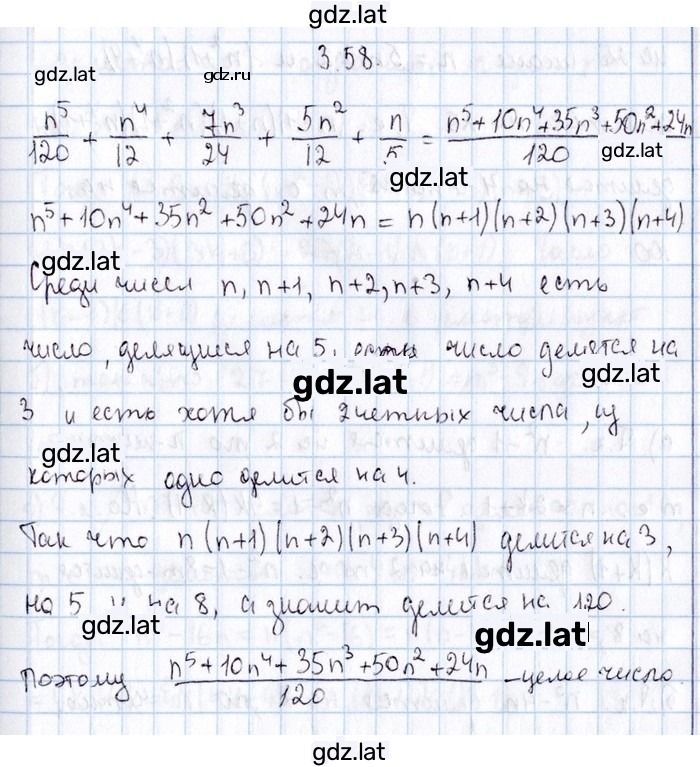 gdz.lat
3.58.
gdz.lat gdz.ru
n⁵/120 + n⁴/12 + 7n³/24 + 5n²/12 + n/5 = (n⁵+10n⁴+35n³+50n²+24n)/120
gdz.lat
gdz.lat
n⁵+10n⁴+35n²+50n²+24n = n(n+1)(n+2)(n+3)(n+4)
gdz.lat
Среди чисел n, n+1, n+2, n+3, n+4 есть
число, делящиеся на 5. число делится на
gdz.lat gdz.lat
3 и есть хотя бы 2 четных числа, из
gdz.lat
которых одно делится на 4.
Так что n(n+1)(n+2)(n+3)(n+4) делится на 3,
на 5 и на 8, а значит делится на 120.
gdz.lat gdz.lat
Поэтому (n⁵+10n⁴+35n³+50n²+24n)/120 - целое число.
gdz.lat